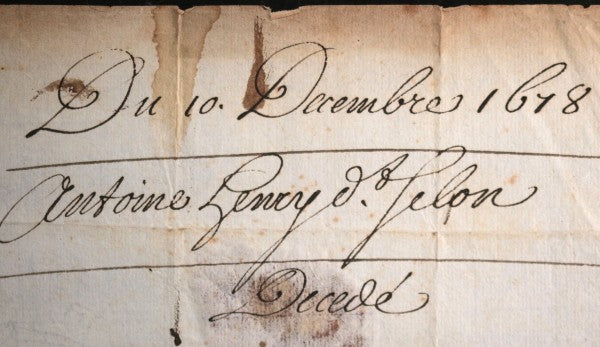 Du 10. Decembre 1678
Antoine Henry d.t Jelon
Decedé